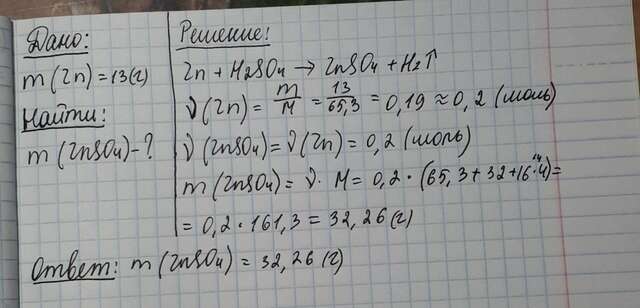 Дано:
m(Zn)=13(г)
Найти:
m(ZnSO4)-?
Решение:
Zn + H2SO4 → ZnSO4 + H2↑
ν(Zn) = m/M = 13/65,3 = 0,19 ≈ 0,2 (моль)
ν(ZnSO4) = ν(Zn) = 0,2 (моль)
m(ZnSO4) = ν · M = 0,2 · (65,3+32+16·4) =
= 0,2 · 161,3 = 32,26 (г)
Ответ: m(ZnSO4) = 32,26 (г)